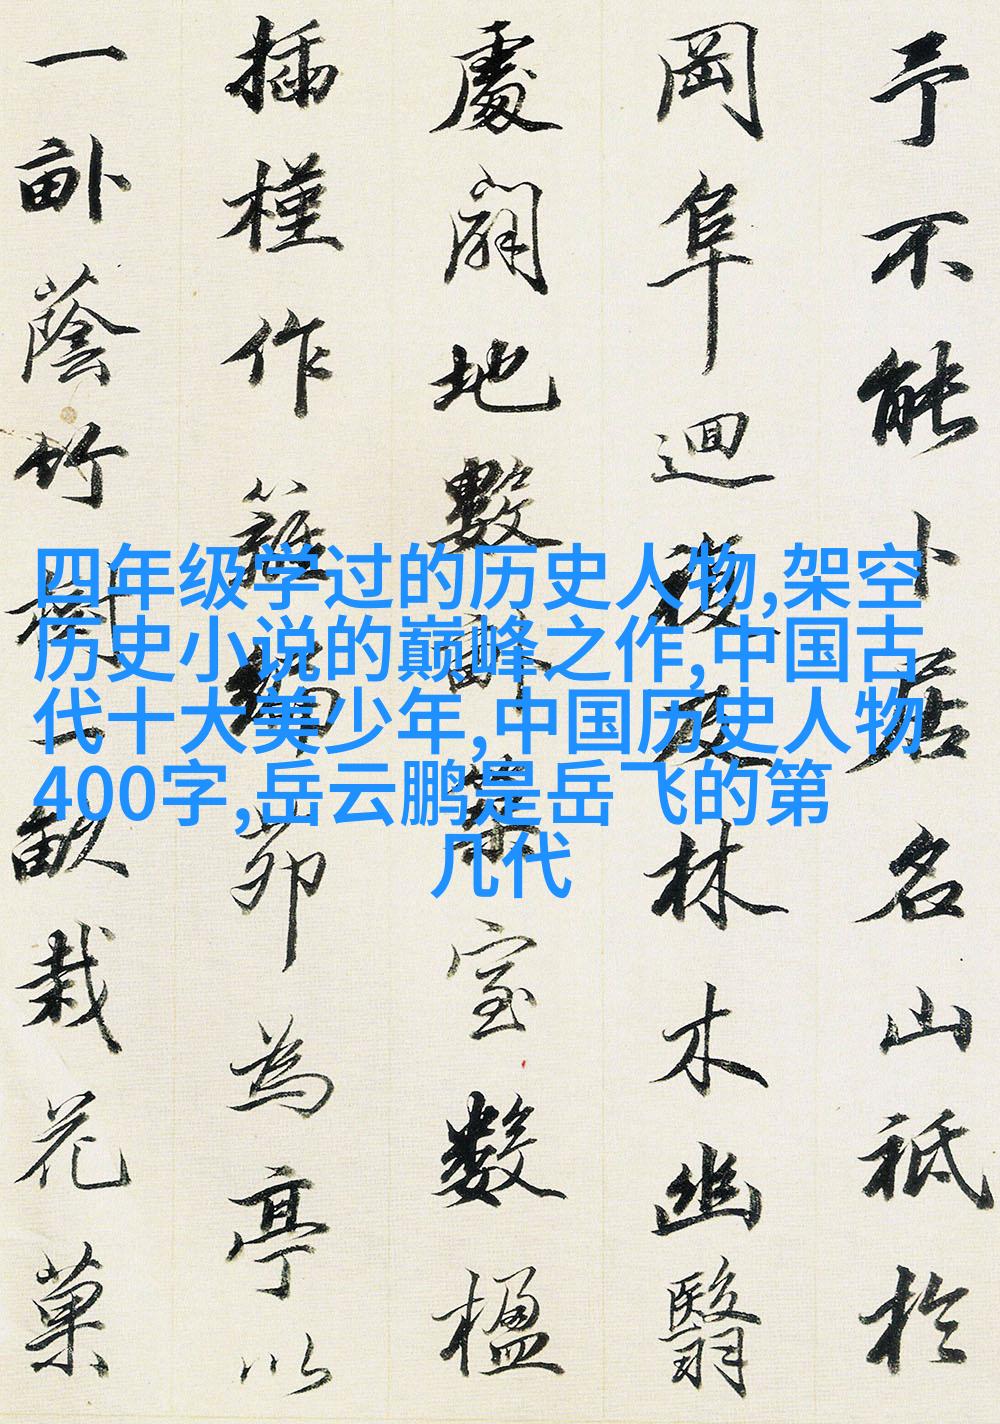 予不能卜居名山祗於
岡阜迴複及林木幽翳
處闢地數畝築室數楹
插槿作籬編茆為亭以
一畝蔭竹樹一畝栽花菓
四年级学过的历史人物,架空
历史小说的巅峰之作,中国古
代十大美少年,中国历史人物
400字,岳云鹏是岳飞的第
几代